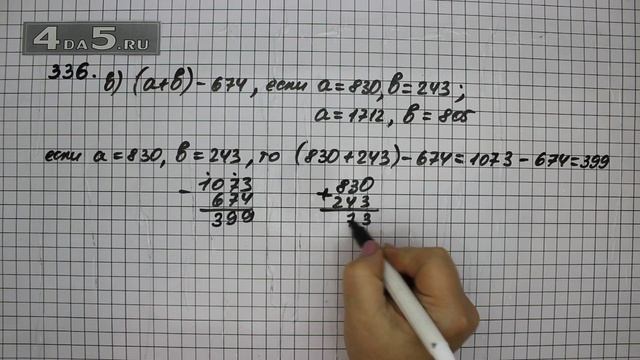 4DA5.RU
336. в) (а+в) – 674, если а = 830, в = 243 ;
а = 1712, в = 805
если а = 830, в = 243, то (830 + 243) – 674 = 1073 – 674 = 399
- 1073
674
399
+ 830
243
73